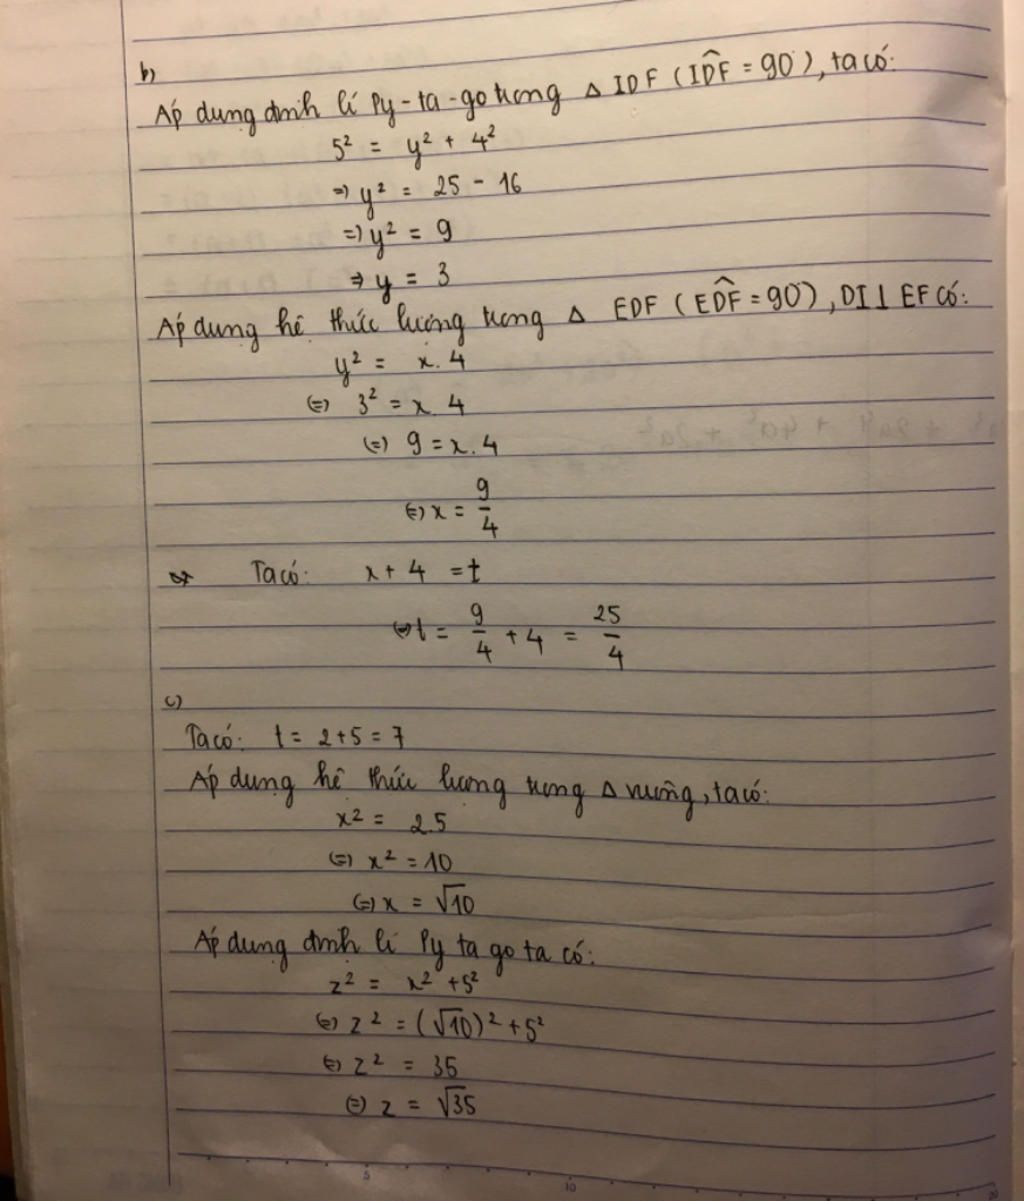 b)
Áp dụng định lí Py-ta-go trong △ IDF (IDF̂ = 90°), ta có:
5² = y² + 4²
⇒ y² = 25 - 16
⇒ y² = 9
⇒ y = 3
Áp dụng hệ thức lượng trong △ EDF (EDF̂ = 90°), DI ⊥ EF có:
y² = x.4
⇔ 3² = x.4
⇔ 9 = x.4
⇔ x = 9/4
Ta có: x + 4 = t
⇔ t = 9/4 + 4 = 25/4
c)
Ta có: t = 2+5 = 7
Áp dụng hệ thức lượng trong △ vuông, ta có:
x² = 2.5
⇔ x² = 10
⇔ x = √10
Áp dụng định lí Py ta go ta có:
z² = x² + 5²
⇔ z² = (√10)² + 5²
⇔ z² = 35
⇔ z = √35
5 10